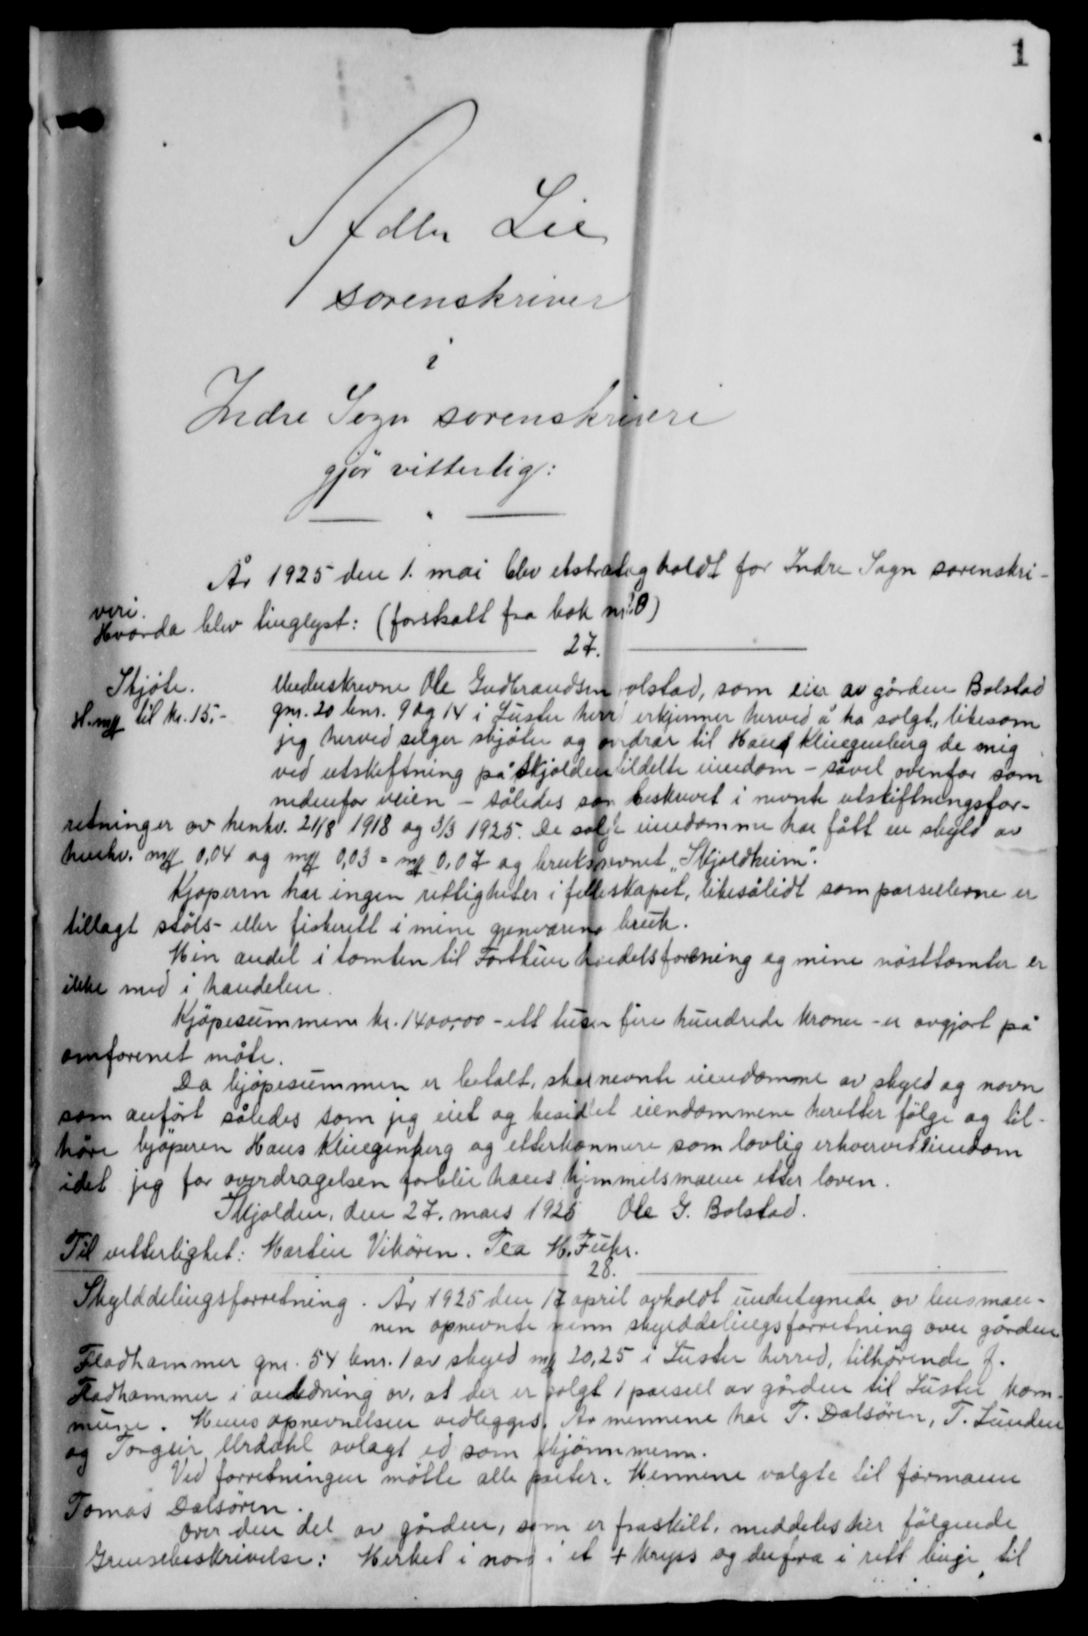 1
Lie
sorenskriver
i
Indre Sogn sorenskriveri
gjör vitterlig:
År 1925 den 1. mai blev ekstrating holdt for Indre Sogn sorenskri-
veri.
Hvorda blev tinglyst: (forskatt fra bok nr.)
27.
Skjöte.
st. mg til kr. 15.-
Underskrevne Ole Gudbrandsen Bolstad, som eier av gården Bolstad
gnr. 20 bnr. 9 og 14 i Luster herred erkjenner herved å ha solgt, likesom
jeg herved selger skjöter og overdrar til Hans Klingenberg de mig
ved utskiftning på Skjolden tildelte eiendom - såvel ovenfor som
nedenfor veien - således som beskrevet i nevnte utskiftningsfor-
retninger av henhv. 21/8 1918 og 3/3 1925. De solgte eiendomme har fått en skyld av
henhv. mg 0,04 og mg 0,03 = mg 0,07 og bruksnevnet "Skjoldheim".
Kjöperen har ingen rettigheter i felleskapet, likesålidt som parsellerne er
tillagt stöls- eller fiskerett i mine gjenværende bruk.
Min andel i tomten til Forthun handelsforening og mine nösttomter er
ikke med i handelen.
Kjöpesummen kr. 1400,00 - ett tusen fire hundrede kroner - er avgjort på
omforenet måte.
Da kjöpesummen er betalt, skal nevnte eiendomme av skyld og navn
som anfört således som jeg eiet og besiddet eiendommene heretter fölge og til-
höre kjöperen Hans Klingenberg og etterkommere som lovlig erhvervet eiendom
idet jeg for overdragelsen forblir hans hjemmelsmann efter loven.
Skjolden, den 27. mars 1925 Ole G. Bolstad.
Til vitterlighet: Martin Vikören. Tea M. Fuhr.
28.
Skylddelingsforretning. År 1925 den 17 april avholdt undertegnede av lensman-
nen opnevnte menn skylddelingsforretning over gården
Fladhammer gnr. 54 bnr. 1 av skyld mg 20,25 i Luster herred, tilhörende J.
Fladhammer i anledning av, at der er solgt 1 parsell av gården til Luster kom-
mune. Menns opnevnelsen vedlegges. Av mennene har T. Dalsören, T. Lunden
og Torgeir Urdahl avlagt ed som skjönnmenn.
Ved forretningen mötte alle parter. Mennene valgte til formann
Tomas Dalsören.
Over den del av gården, som er fraskilt, meddeles her fölgende
Grensebeskrivelse: Merket i nord i et + kryss og derfra i rett linje til